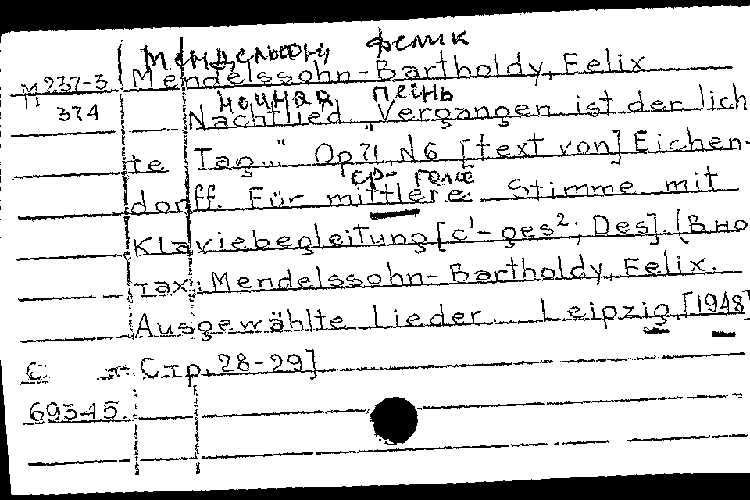 Мендельсон, Феликс
М 237-3 Mendelssohn-Bartholdy, Felix
374 ночная песнь
Nachtlied. "Vergangen ist der lich-
te Tag..." Op 71, N6 [text von] Eichen-
ср- голос
dorff. Für mittlere Stimme mit
Klaviebegleitung [c¹-ges²; Des]. [В но-
тах: Mendelssohn-Bartholdy, Felix.
Ausgewählte Lieder. Leipzig, [1948]
С Стр. 28-29]
693-45.